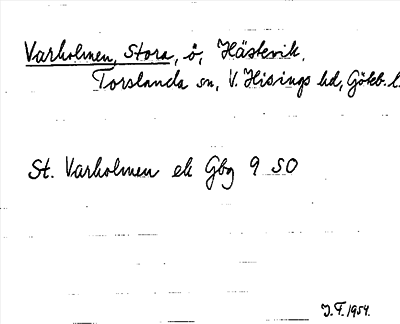 Varholmen, Stora, ö, Hästevik,
Torslanda sn, V. Hisings hd, Göteb. l.
St. Varholmen ek Gbg 9 SO
J.F. 1954.